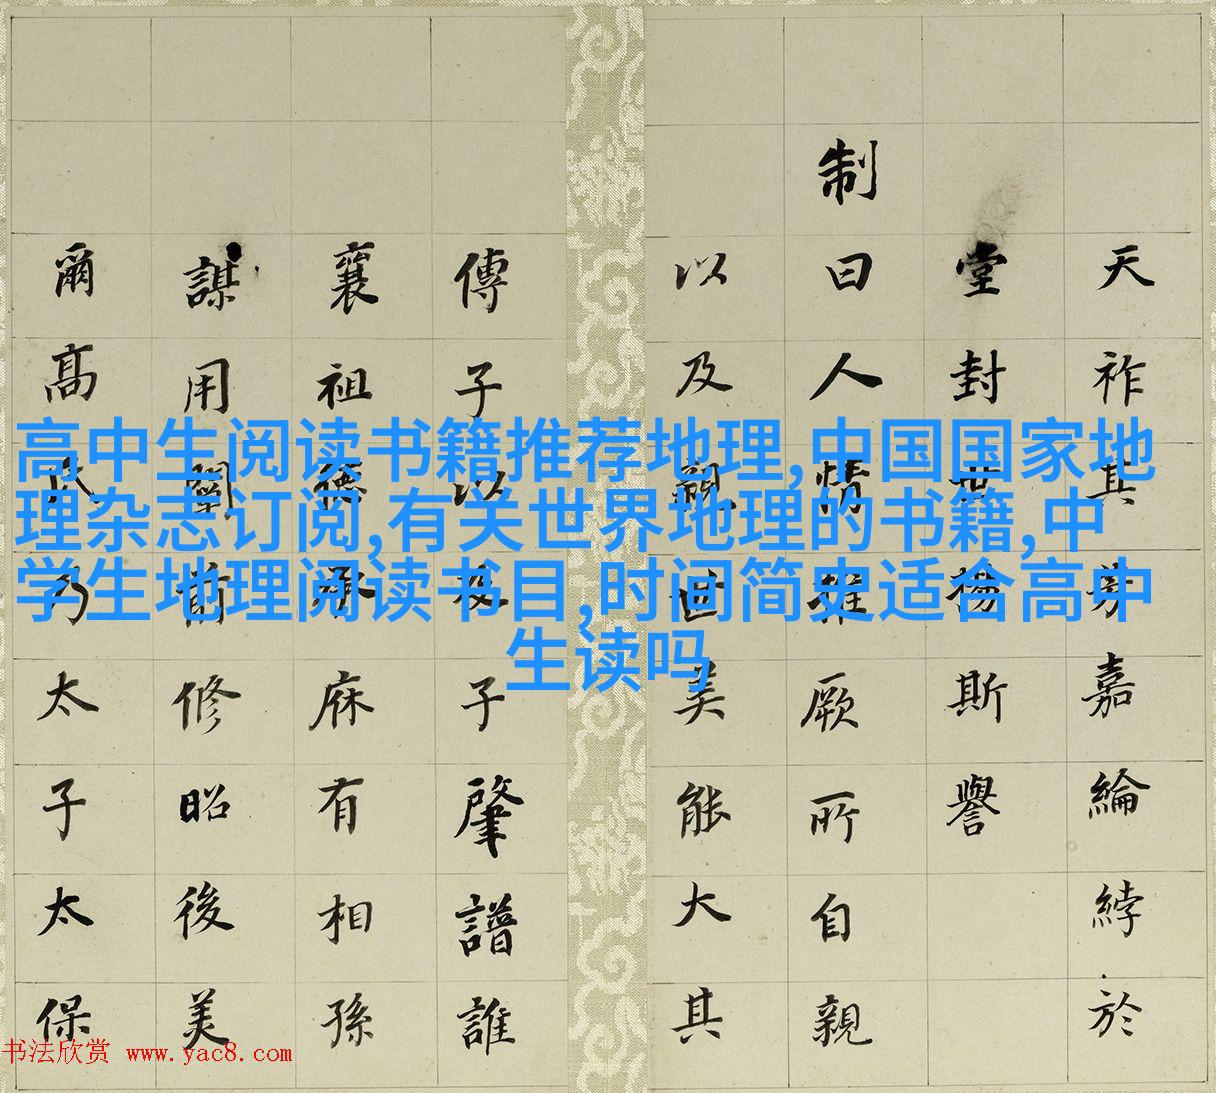 高中生阅读书籍推荐地理,中国国家地
理杂志订阅,有关世界地理的书籍,中
学生地理阅读书目,时间简史适合高中
生读吗
天祚其嘉綸綍於
堂封世揚斯譽
制曰人情推厥所自親
以及親世美能大其
傳子以及子肇譜誰
襄祖德承庥有相孫
謀用闡前修昭後美
爾高乃太子太保
书法欣赏 www.yac8.com